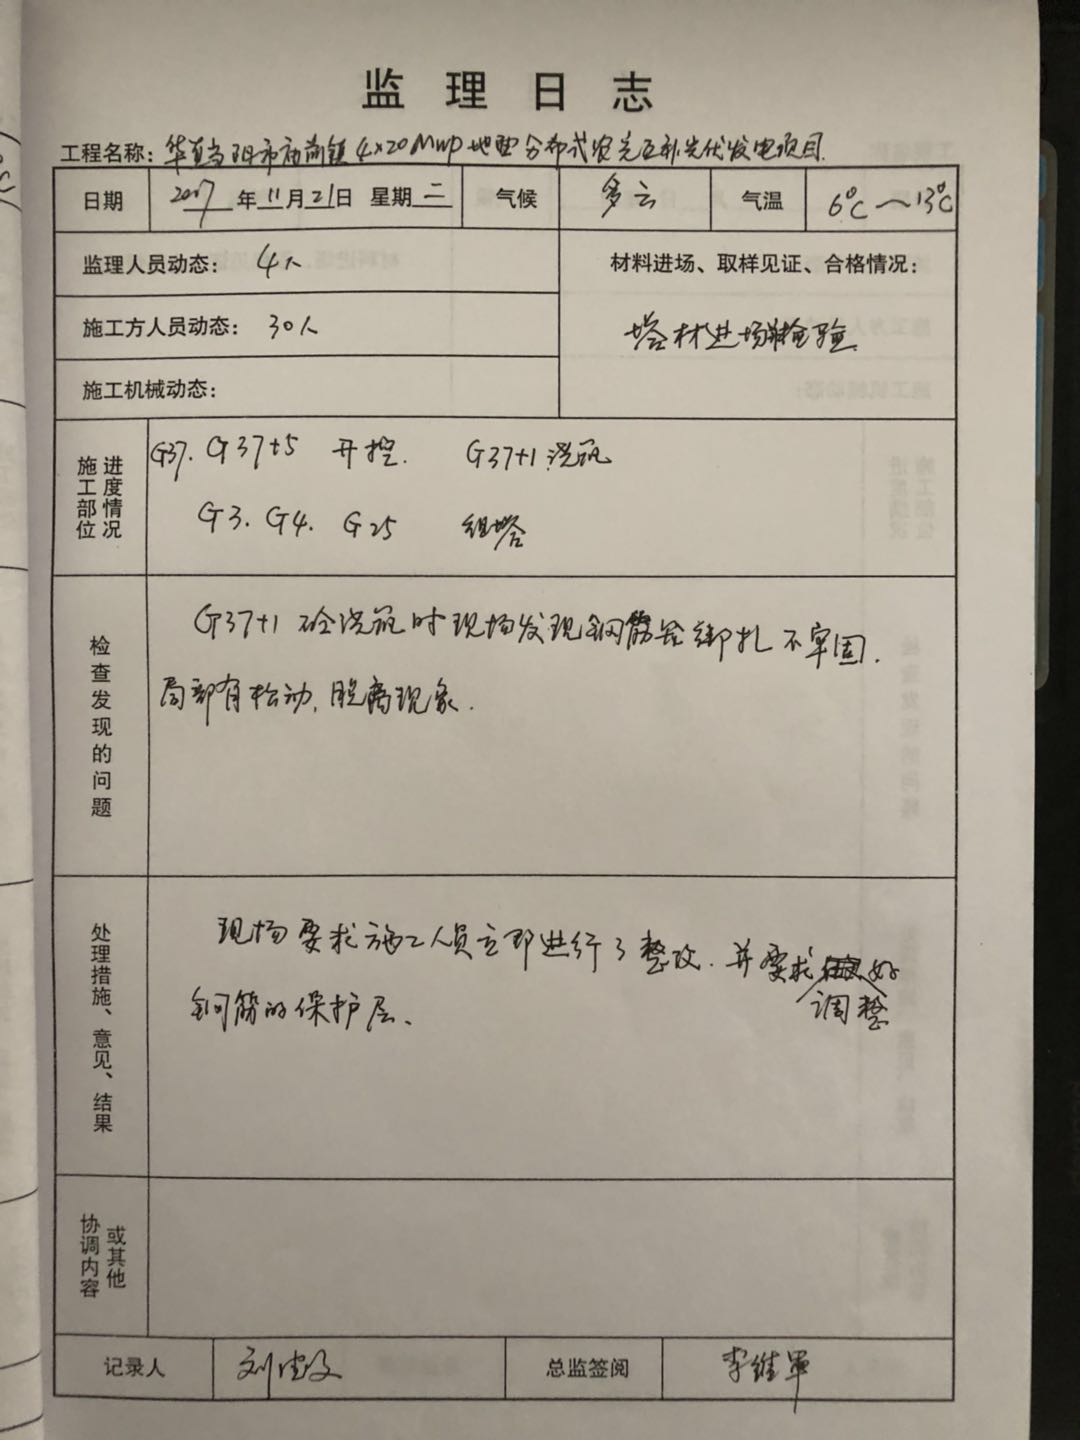 监理日志
工程名称：华直当阳市庙前镇4×20MWP地面分布式农光互补光伏发电项目.
日期 2017年11月21日 星期二 气候 多云 气温 6℃～13℃
监理人员动态：4人
材料进场、取样见证、合格情况：
施工方人员动态：30人
塔材进场并检验
施工机械动态：
施工部位 进度情况
G37. G37+5 开挖. G37+1 浇筑
G3. G4. G25 组塔
检查发现的问题
G37+1 砼浇筑时现场发现钢筋绑扎不牢固.
局部有松动, 脱离现象.
处理措施、意见、结果
现场要求施工人员立即进行了整改. 并要求好
调整
钢筋的保护层.
协调内容 或其他
记录人 刘 总监签阅 李维軍